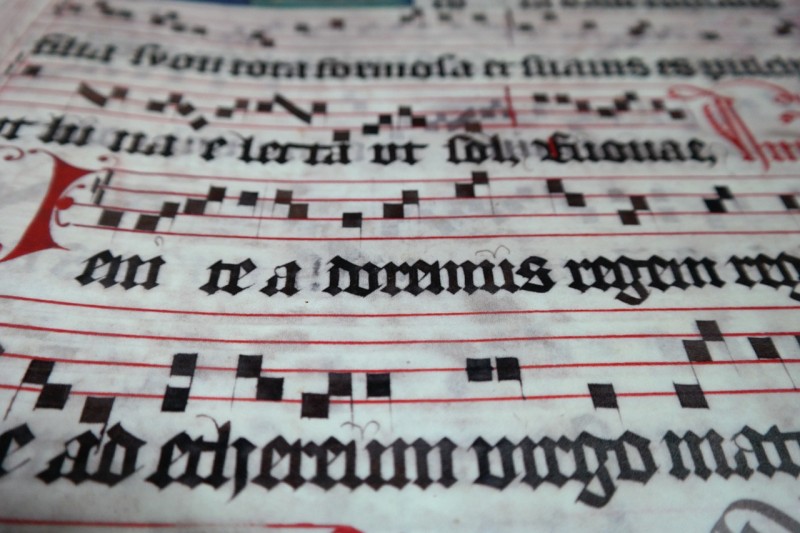 filia syon tota formosa et suavis es pulch
ut lu na e lecta ut sol, Euouae,
em te a doremus regem reg
ad ethereum virgo mat